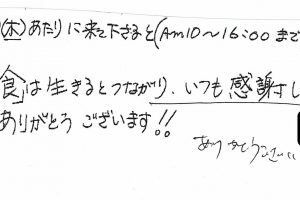 (木)あたりに来て下さると(Am10〜16:00まで
食」は生きるとつながり、いつも感謝し
ありがとうございます!!
ありがとうございま